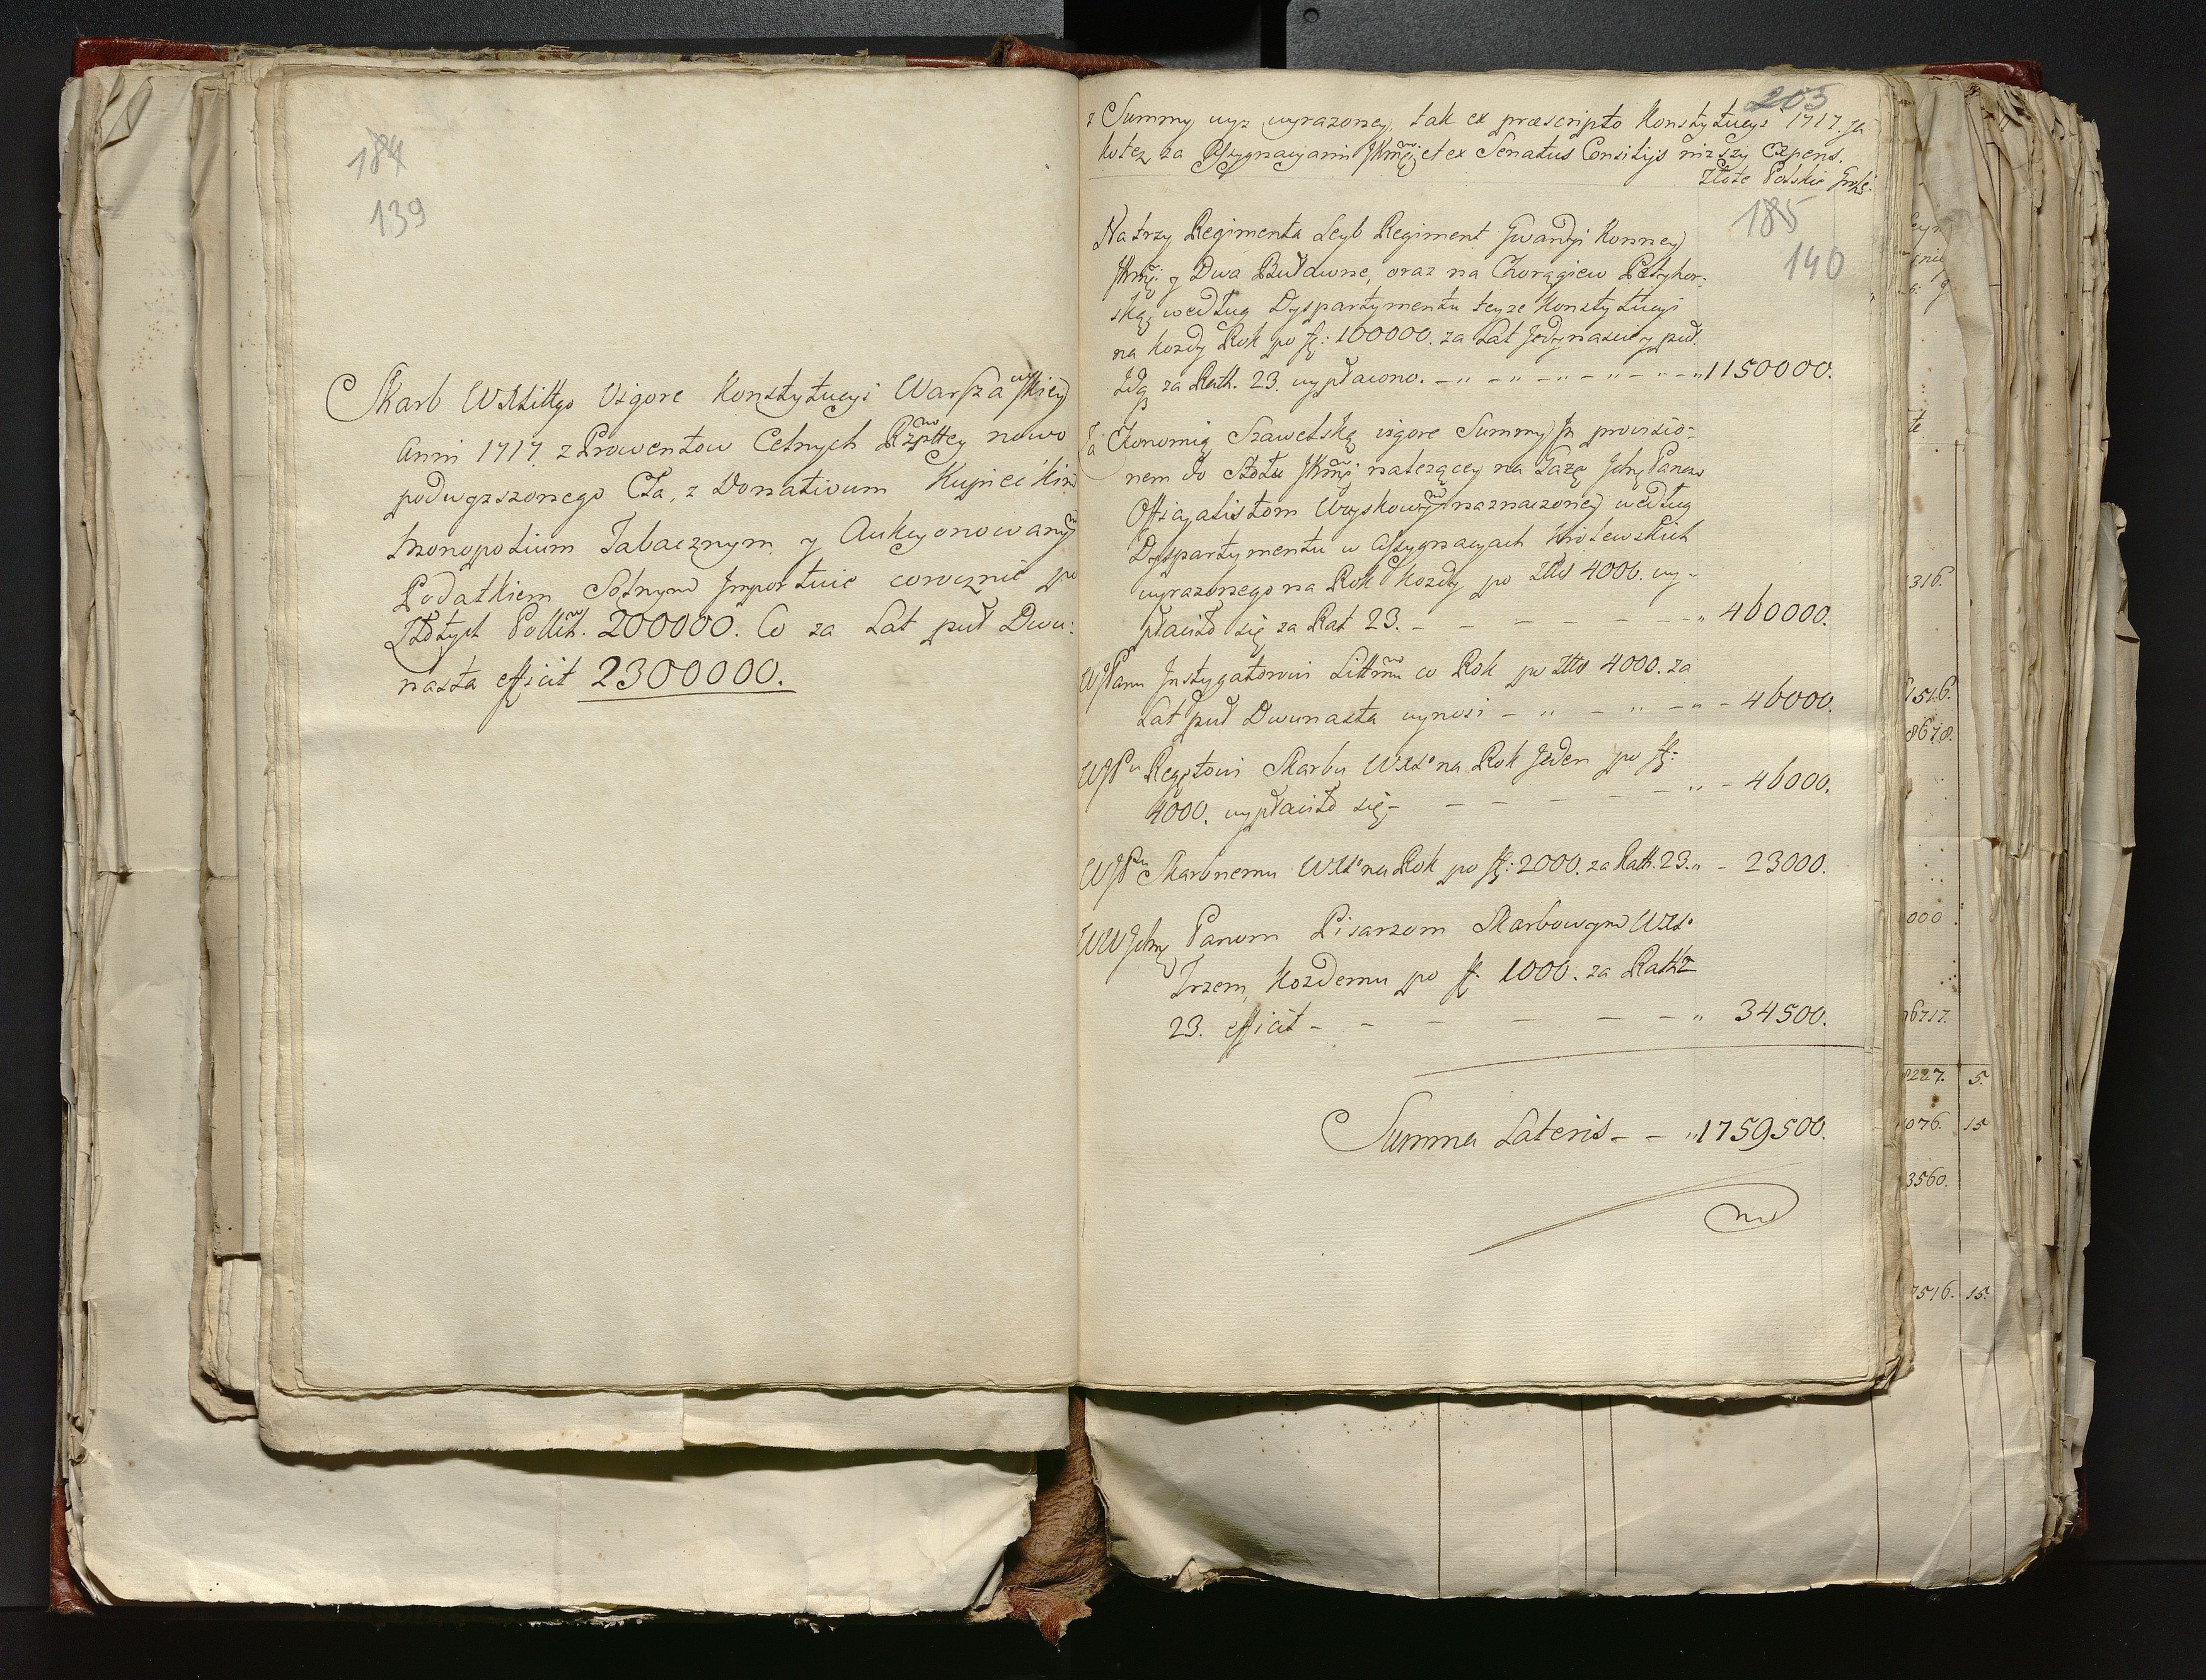 184
139
Skarb WXLittgo Vigore Konstytucyi Warszawskiey
Anni 1717. z Prowentow Celnych Rzpttey nowo
podwyzszonego Cła, z Donativum Kupieckim
Monopolium Tabacznym y Aukcyonowanym
Podatkiem Solnym Importuie corocznie po
Złotych Polskich. 200000. Co za Lat puł Dwu:
nasta efficit 2300000.
203
z Summy wyz wyrazoney, tak ex præscripto Konstytucyi 1717. ja
kotez za Assygnacyami JKMci et ex Senatus Consilijs niższy Expens.
Złote Polskie Grosze
185
140
Na trzy Regimenta Leyb Regiment Gwardyi Konney
JKMci y Dwa Buławne, oraz na Chorągiew Petyhor:
ską, według Dyspartymentu teyze Konstytucyi
na kozdy Rok po fl: 100000. za Lat Jedynascie y puł.
Idq za Rath. 23. wypłacono. - " - " - " - " - " - " 1150000.
Za Ekonomią Szawelską vigore Summy In provisio=
nem do Stołu JKMci nalezącey na Gazę Ichmc Panow
Officyalistom Woyskowym naznaczoney według
Dyspartymentu w Assygnacyach Krolewskich
wyrazonego na Rok kozdy po Złł 4000. wy-
płaciło się za Rat 23. - - - - - - " 460000.
WJPanu Instygatorowi Littmu co Rok po Złł 4000. za
Lat puł Dwunasta wynosi - " - " - " - 46000.
WJPu Regętowi Skarbu WXLo na Rok Jeden po fl:
4000. wypłaciło się - - - - - - " - 46000.
WJPu Skarbnemu WXLo na Rok po fl: 2000. za Rath. 23. " - 23000.
WW Ichmc Panom Pisarzom Skarbowym WXLo
Trzem, kozdemu po fl. 1000. za Rath
23. efficit - - - - - - " 34500.
Summa Lateris - - " 1759500.
316.
7516.
8678.
000
6717.
8227. 5.
076. 15
3560.
7516. 15.